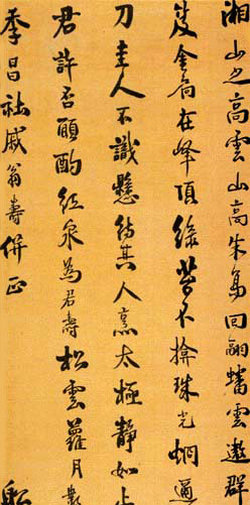 湘山之高雲山高朱鳥回翩蟠雲遨群
金扃在峰頂綠苔不揜珠光炯
刀圭人不識懸待其人烹太極靜如
君許否願酌紅泉為君壽松雲蘿月
季昌社戚翁壽併正